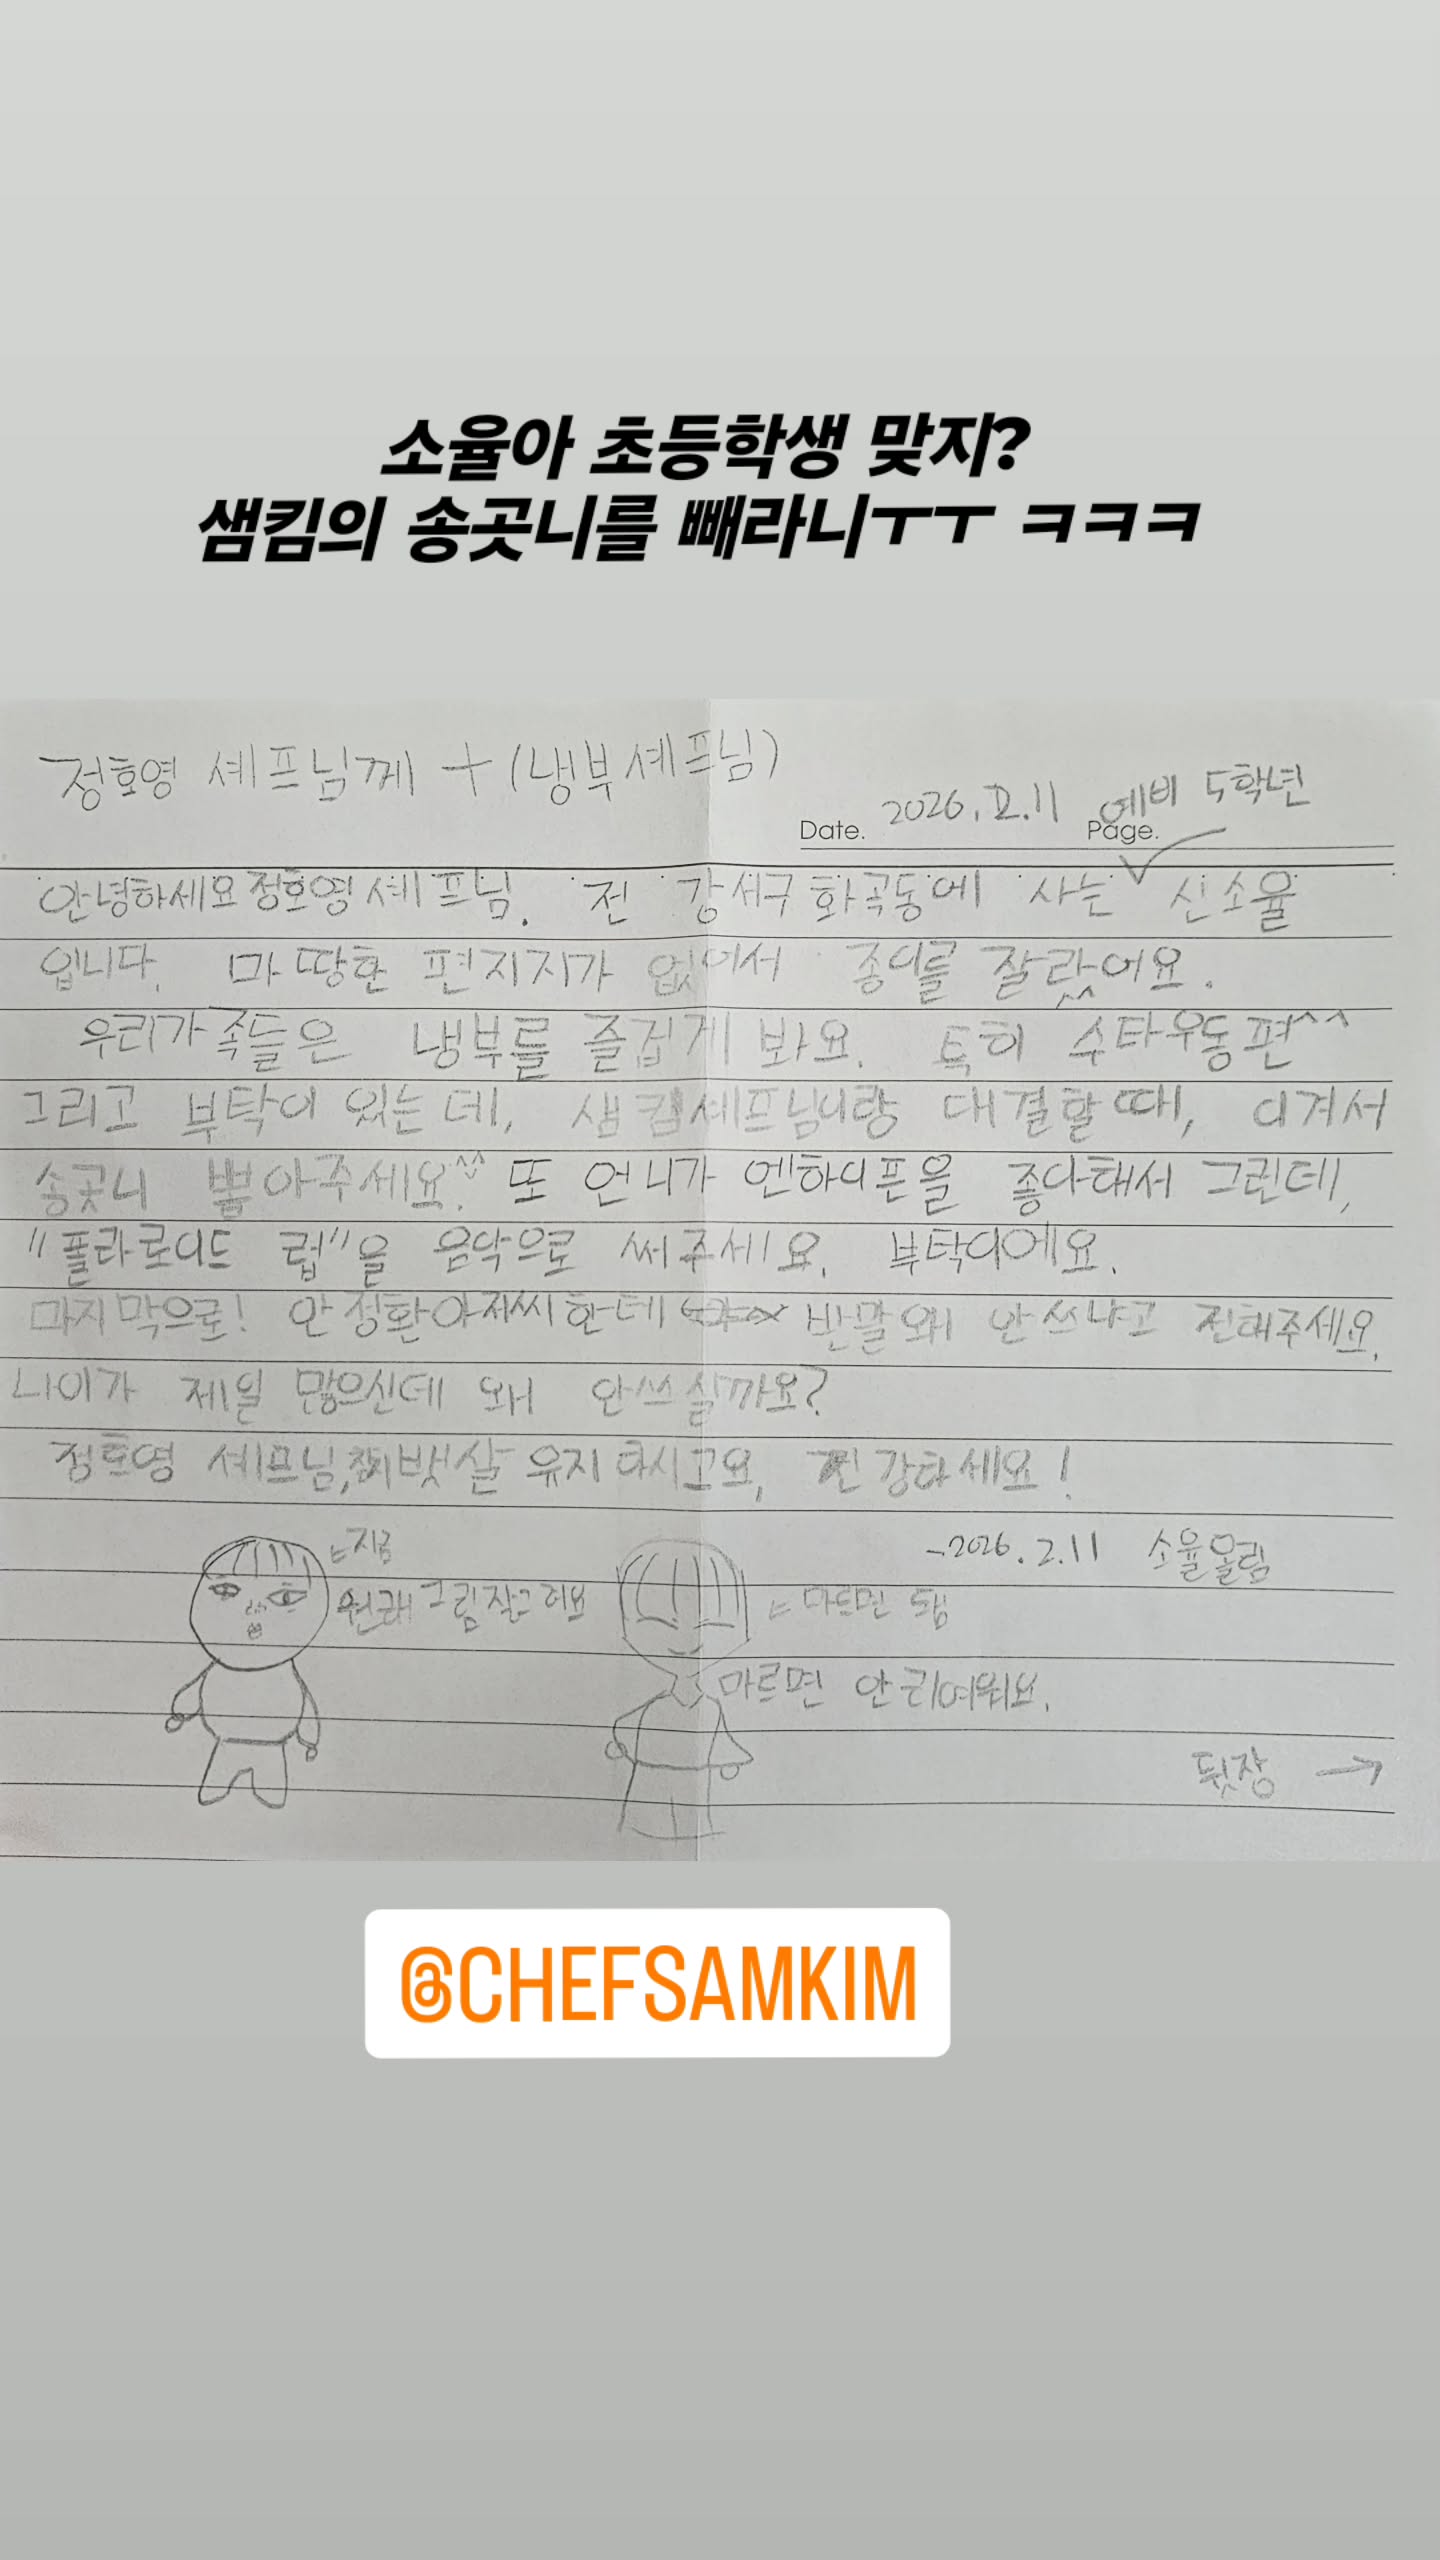 소율아 초등학생 맞지?
샘킴의 송곳니를 빼라니ㅜㅜ ㅋㅋㅋ
정호영 셰프님께 + (냉부셰프님)
Date. 2026.2.11 Page. 예비 5학년
안녕하세요 정호영 셰프님. 전 강서구 화곡동에 사는 신소율
입니다. 마땅한 편지지가 없어서 종이를 잘랐어요.^^
우리가족들은 냉부를 즐겁게 봐요. 특히 수타우동편^^
그리고 부탁이 있는데, 샘킴셰프님이랑 대결할때, 이겨서
송곳니 뽑아주세요.^^ 또 언니가 엔하이픈을 좋아해서 그런데,
"폴라로이드 럽"을 음악으로 써주세요. 부탁이에요.
마지막으로! 안정환아저씨한테 반말 왜 안쓰냐고 전해주세요.
나이가 제일 많으신데 왜 안쓰실까요?
정호영 셰프님, 뱃살 유지하시고요, 건강하세요!
지금
-2026.2.11 소율올림
원래 그림 잘그려요
마르면 됨
마르면 안귀여워요.
뒷장 →
@CHEFSAMKIM